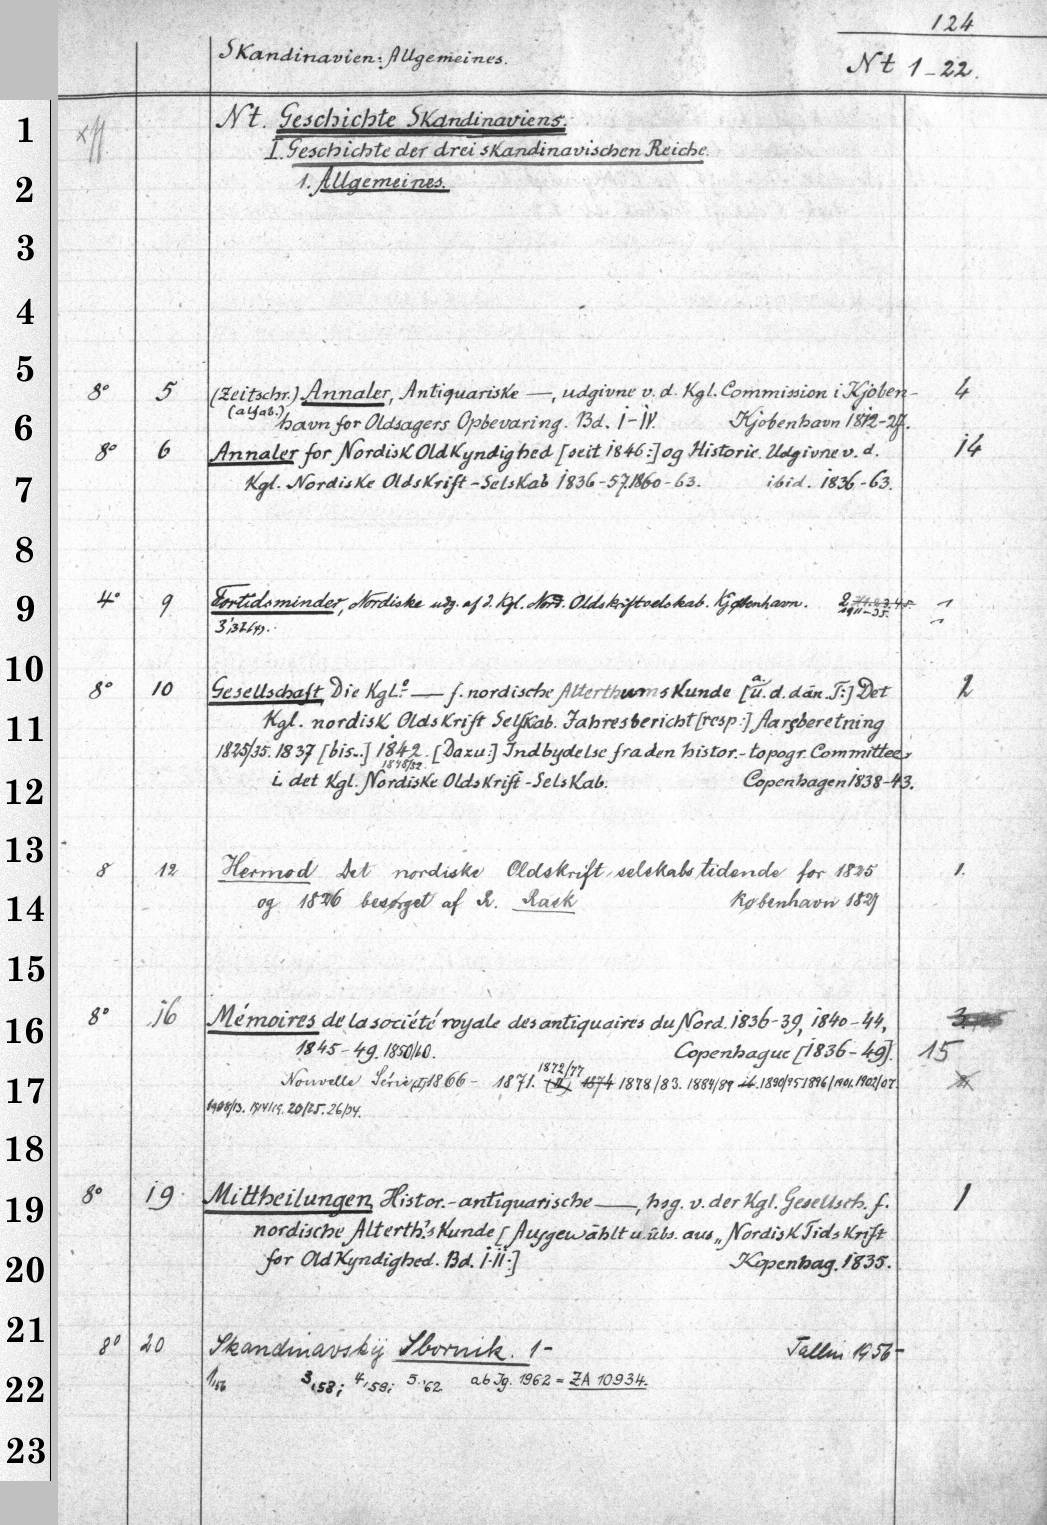 124
Skandinavien: Allgemeines.
Nt 1-22.
1 Nt. Geschichte Skandinaviens.
I. Geschichte der drei skandinavischen Reiche.
2 1. Allgemeines.
3
4
5
8° 5 (Zeitschr.) Annaler, Antiquariske —, udgivne v. d. Kgl. Commission i Kjöben- 4
6 havn for Oldsagers Opbevaring. Bd. I-IV. Kjöbenhavn 1812-27.
8° 6 Annaler for Nordisk Oldkyndighed [seit 1846:] og Historie. Udgivne v. d. 14
7 Kgl. Nordiske Oldskrift-Selskab 1836-57. 1860-63. ibid. 1836-63.
8
9 4° 9 Fortidsminder, Nordiske udg. af d. Kgl. Nord. Oldskriftselskab. Kjøbenhavn. 2
1911-35.
3,
10
8° 10 Gesellschaft, Die Kgl. — f. nordische Alterthumskunde [a. u. d. dän. T:] Det 2
11 Kgl. nordisk Oldskrift Selskab. Jahresbericht [resp:] Aarsberetning
1825/35. 1837 [bis..] 1842. [Dazu:] Indbydelse fra den histor.-topogr. Committee
1848/52.
12 i det Kgl. Nordiske Oldskrift-Selskab. Copenhagen 1838-43.
13
8 12 Hermod Det nordiske Oldskrift-selskabs tidende for 1825 1.
14 og 1826 besørget af R. Rask København 1827
15
16 8° 16 Mémoires de la société royale des antiquaires du Nord. 1836-39, 1840-44,
1845-49. 1850/60. Copenhague [1836-49]. 15
1872/77
17 Nouvelle Série 1866- 1871. 1874 1878/83. 1884/89 1890/95 1896/1901. 1902/07.
1908/13. 1914/19. 20/25. 26/34.
18
19 8° 19 Mittheilungen, Histor.-antiquarische —, hsg. v. der Kgl. Gesellsch. f. 1
nordische Alterth.'skunde [Ausgewählt u. übs. aus „Nordisk Tidskrift
20 for Oldkyndighed. Bd. I-II:] Kopenhag. 1835.
21
8° 20 Skandinavskij Sbornik. 1- Tallin 1956-
22 1,56 3,58; 4,59; 5.'62 ab Jg. 1962 = ZA 10934.
23